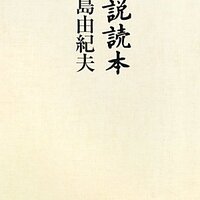 説読本
島由紀夫